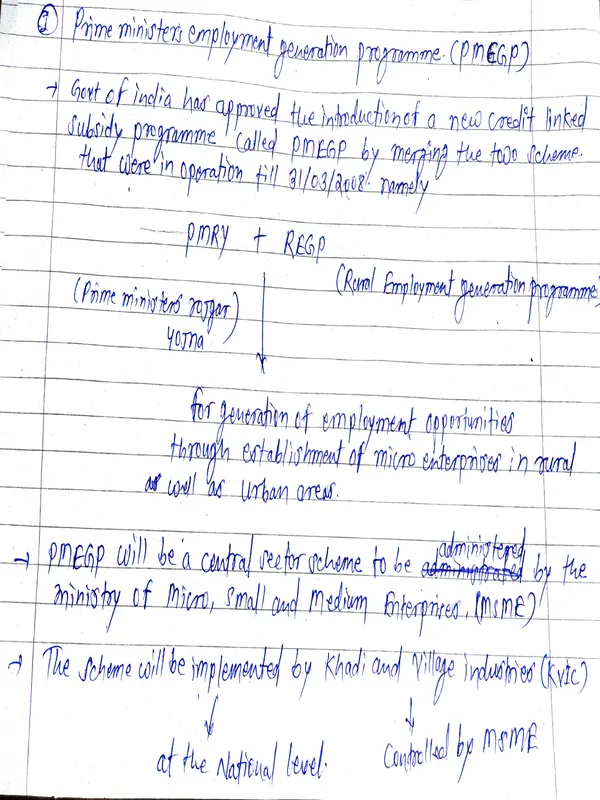 ① Prime ministers employment generation programme. (PMEGP)
→ Govt of india has approved the introduction of a new credit linked
subsidy programme called PMEGP by merging the two scheme.
that were in operation till 31/03/2008. namely
PMRY + REGP
(Rural Employment generation programme)
(Prime ministers rojgar)
yojna
for generation of employment opportunities
through establishment of micro enterprises in rural
as well as urban areas.
administered
→ PMEGP will be a central sector scheme to be administrated by the
ministry of Micro, small and Medium Enterprises, (MSME)
→ The scheme will be implemented by Khadi and Village industries (KVIC)
↓ ↓
at the National level. Controlled by MSME